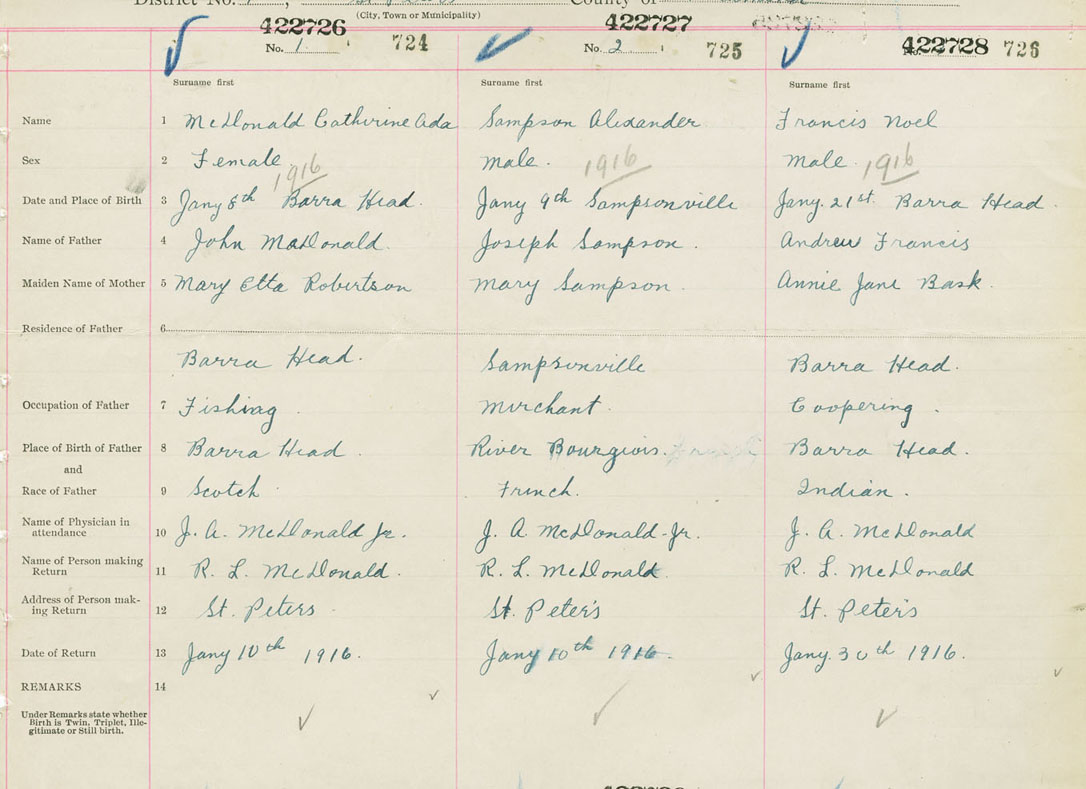 District No.
County of
(City, Town or Municipality)
422726
No. 1
724
422727
No. 2
725
422728
726
Surname first
Surname first
Surname first
Name 1 McDonald Catherine Ada Sampson Alexander Francis Noel
Sex 2 Female. male. male.
1916 1916 1916
Date and Place of Birth 3 Jany 8th Barra Head. Jany 9th Sampsonville Jany. 21st. Barra Head.
Name of Father 4 John MacDonald. Joseph Sampson. Andrew Francis
Maiden Name of Mother 5 Mary Etta Robertson Mary Sampson. Annie Jane Bask.
Residence of Father 6
Barra Head. Sampsonville Barra Head.
Occupation of Father 7 Fishing Merchant. Coopering.
Place of Birth of Father 8 Barra Head. River Bourgeois. Barra Head.
and
Race of Father 9 Scotch French. Indian.
Name of Physician in
attendance 10 J. A. McDonald Jr. J. A McDonald Jr. J. A. McDonald
Name of Person making
Return 11 R. L. McDonald. R. L. McDonald R. L. McDonald
Address of Person mak-
ing Return 12 St. Peters St. Peter's St. Peter's
Date of Return 13 Jany 10th 1916. Jany 10th 1916. Jany. 30th 1916.
REMARKS 14
Under Remarks state whether
Birth is Twin, Triplet, Ille-
gitimate or Still birth.